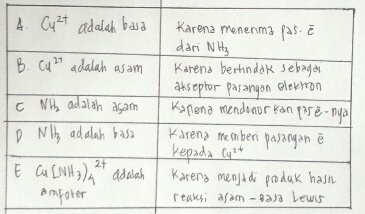 A. Cu²⁺ adalah basa
Karena menerima pas. ē
dari NH₃
B. Cu²⁺ adalah asam
Karena bertindak sebagai
akseptor pasangan elektron
C NH₃ adalah asam
Karena mendonor kan pas ē-nya
D NH₃ adalah basa
Karena memberi pasangan ē
kepada Cu²⁺
E Cu(NH₃)₄²⁺ adalah
amfoter
Karena menjadi produk hasil
reaksi asam-basa Lewis